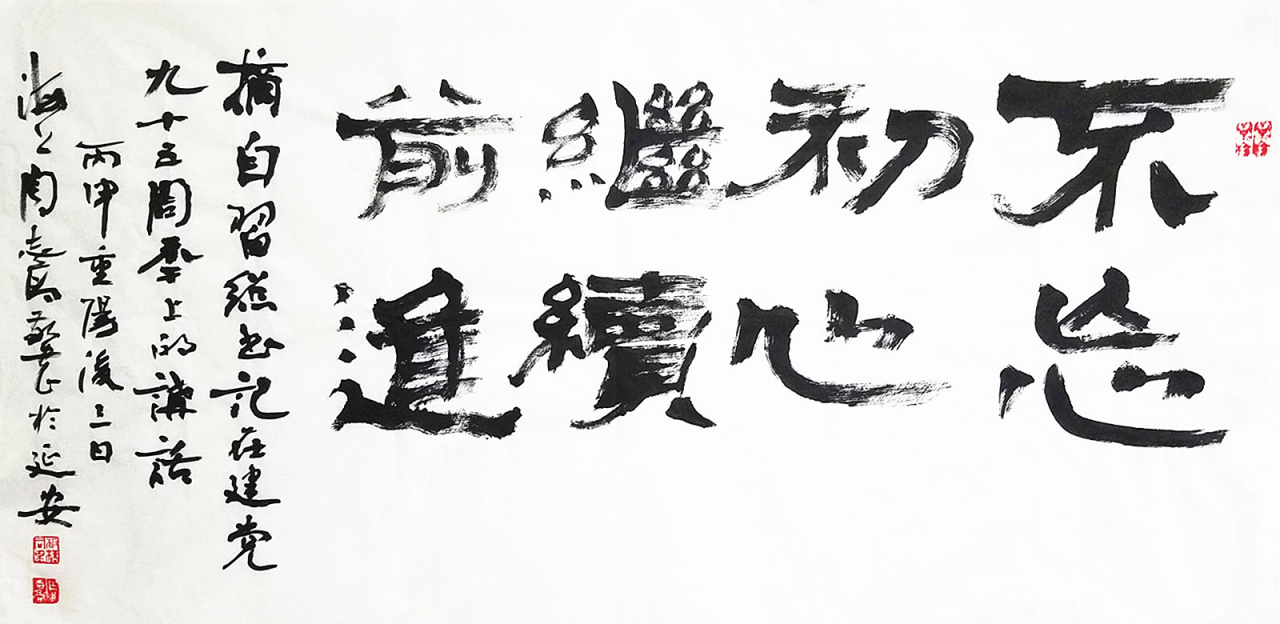 不忘
初心
繼續
前進
摘自習總书記在建党
九十五周年上的講話
丙申重陽後三日
海上周志高敬書於延安